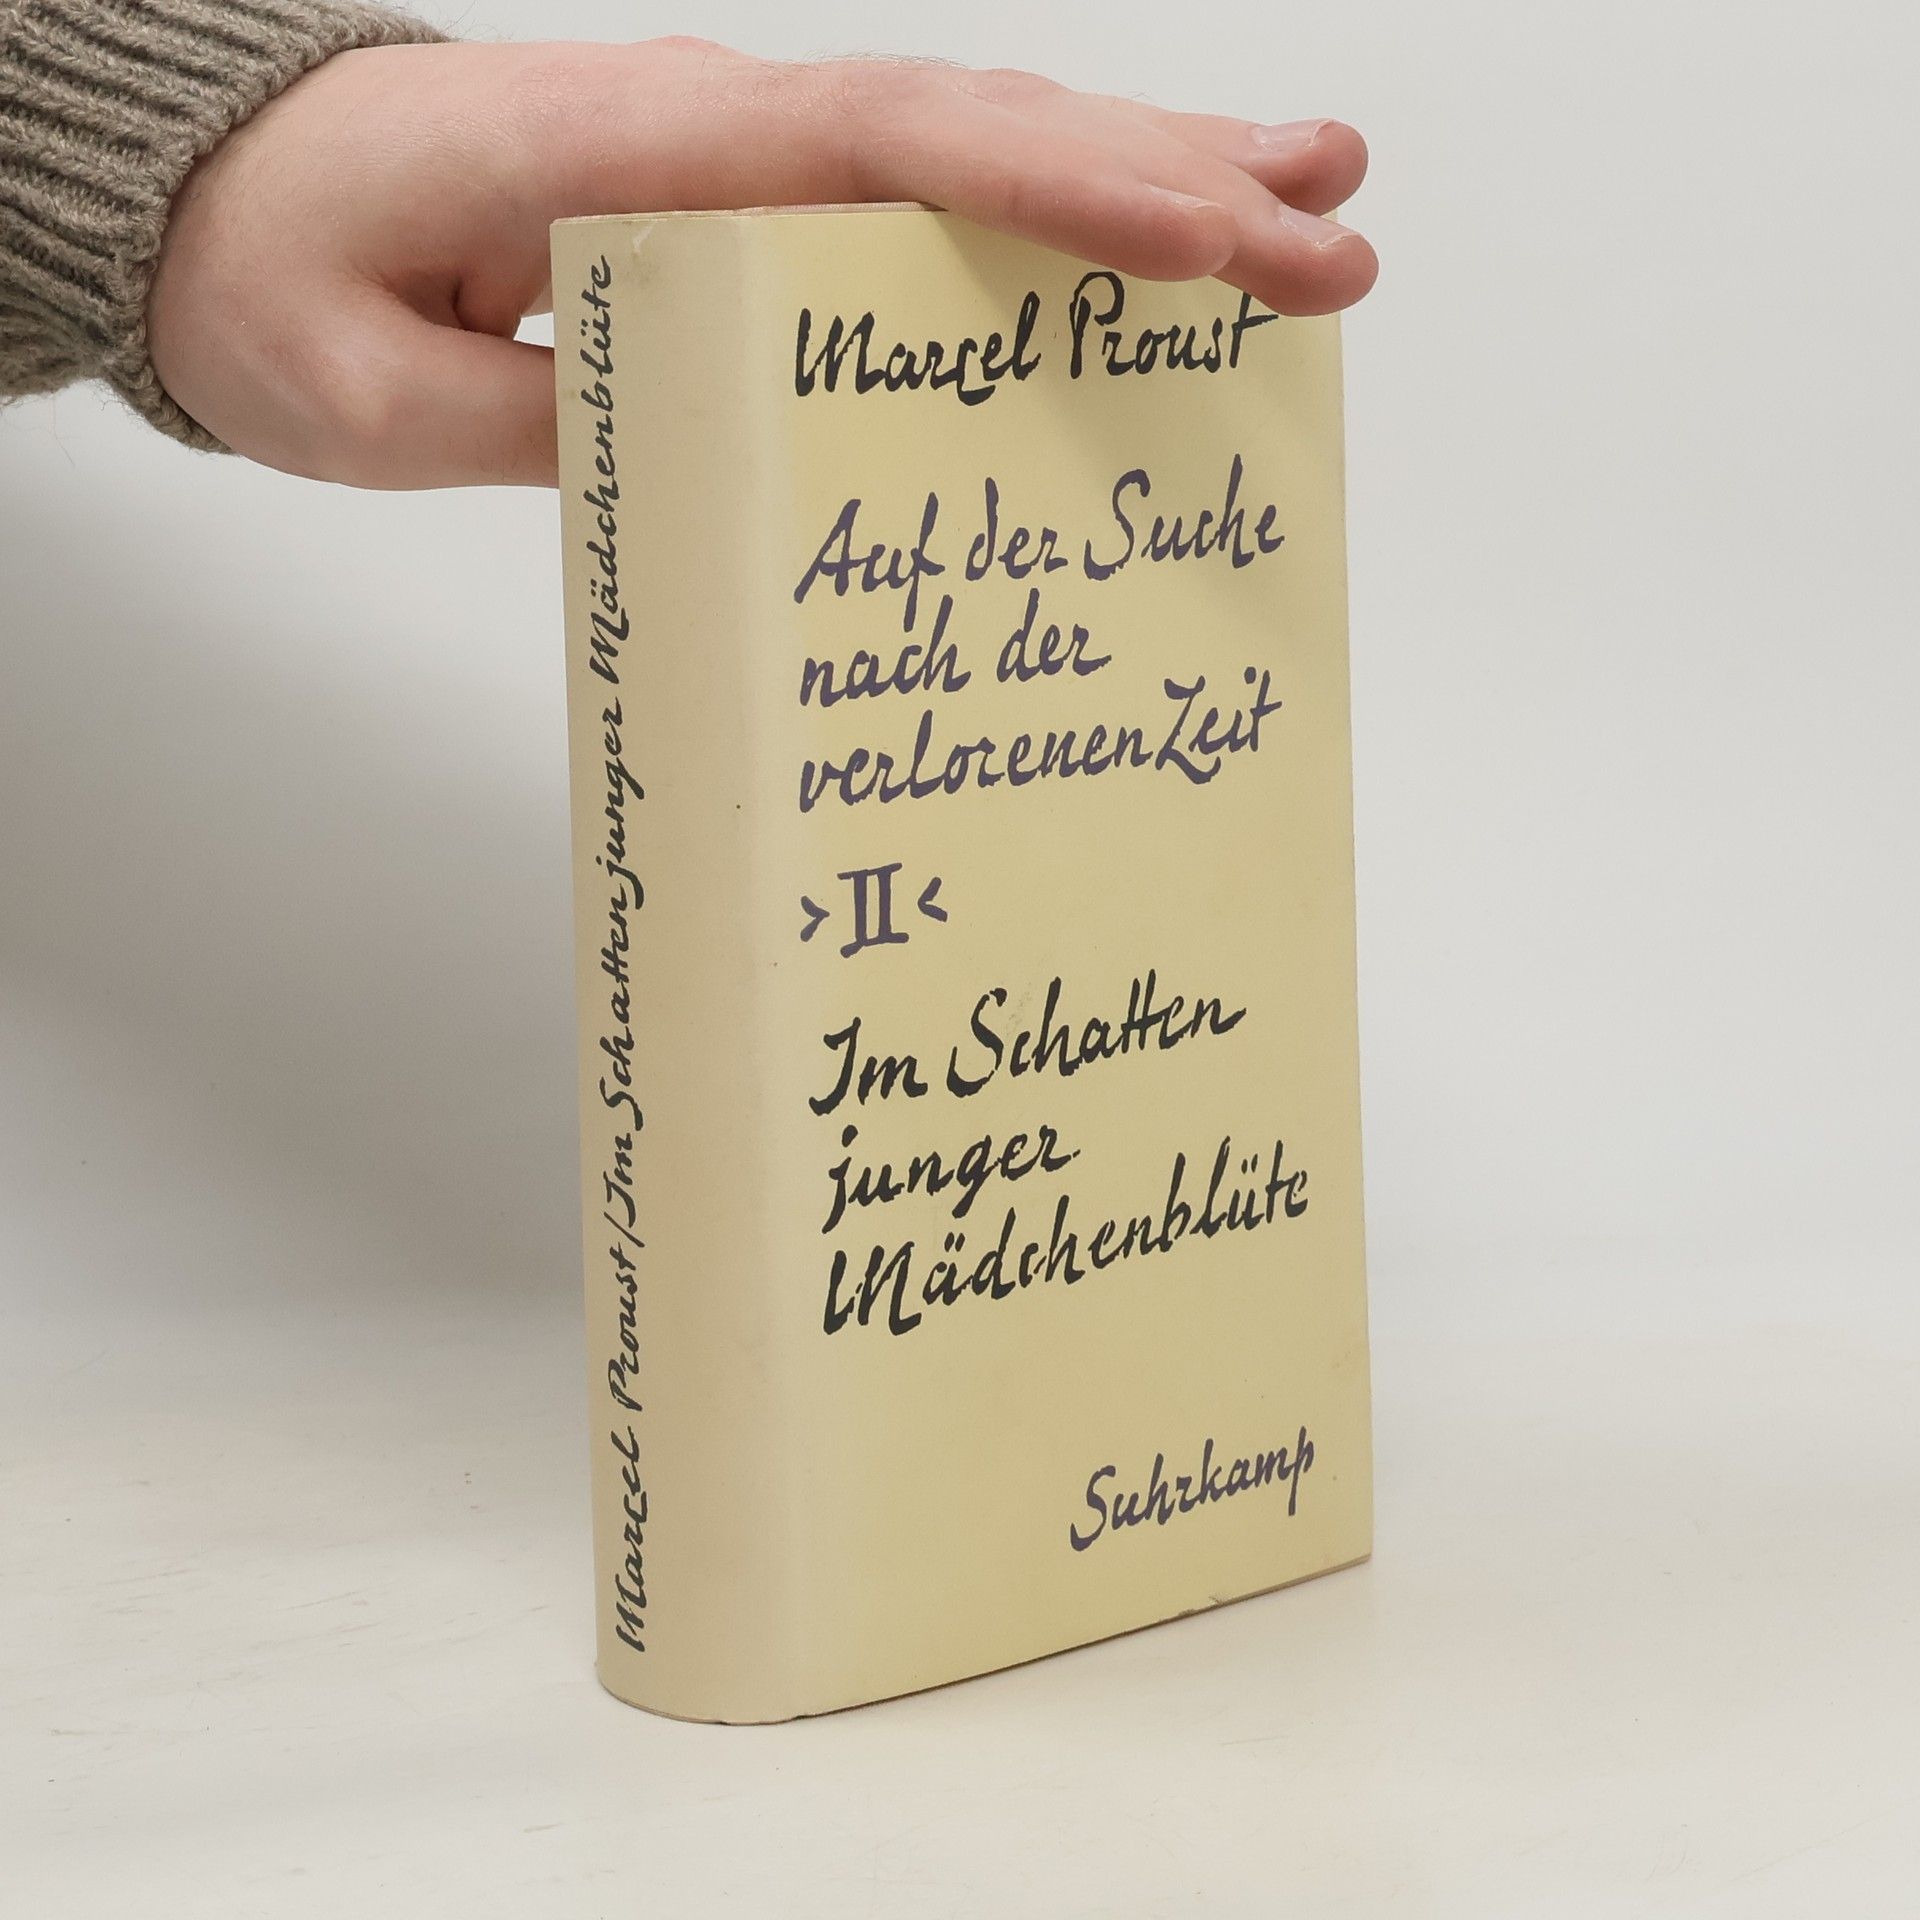 Marcel Proust/Im Schatten junger Mädchenblüte
Marcel Proust
Auf der Suche
nach der
verlorenen Zeit
>II<
Im Schatten
junger
Mädchenblüte
Suhrkamp